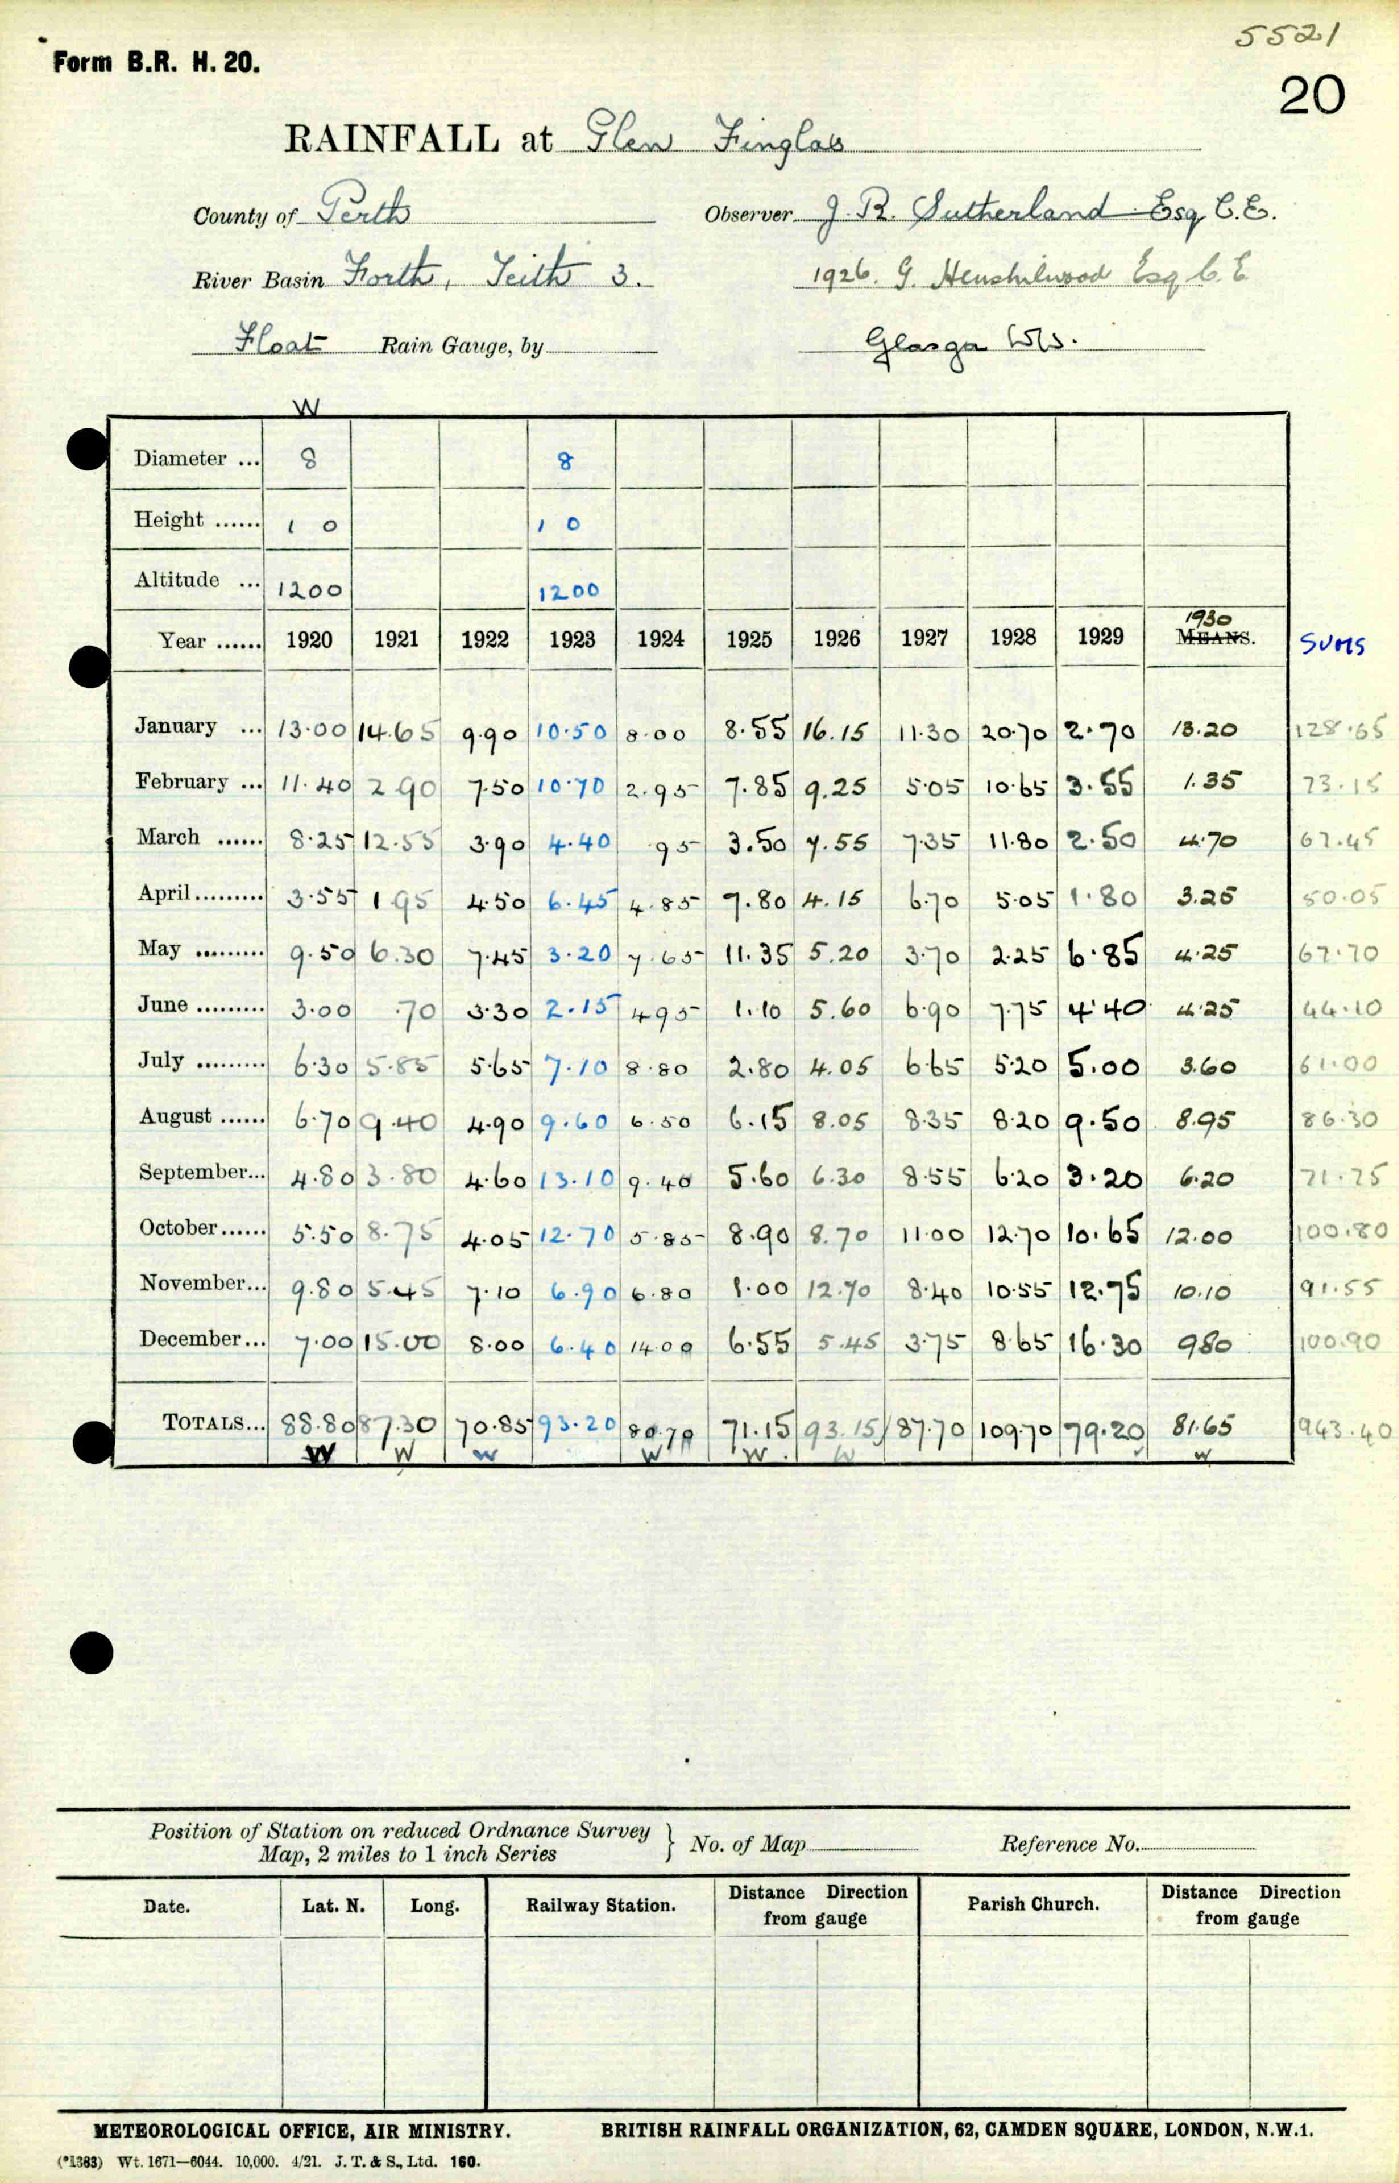 5521
Form B.R. H. 20.
20
RAINFALL at Glen Finglas
County of Perth Observer J. R. Sutherland Esq C.E.
River Basin Forth, Teith 3. 1926. G. Henshilwood Esq C.E
Float Rain Gauge, by Glasga WW.
W
Diameter ... 8 8
Height ...... 1 0 1 0
Altitude ... 1200 1200
1930
Year ...... 1920 1921 1922 1923 1924 1925 1926 1927 1928 1929 MEANS. SUMS
January ... 13.00 14.65 9.90 10.50 8.00 8.55 16.15 11.30 20.70 2.70 13.20 128.65
February ... 11.40 2.90 7.50 10.70 2.95 7.85 9.25 5.05 10.65 3.55 1.35 73.15
March ...... 8.25 12.55 3.90 4.40 95 3.50 7.55 7.35 11.80 2.50 4.70 67.45
April ......... 3.55 1.95 4.50 6.45 4.85 7.80 4.15 6.70 5.05 1.80 3.25 50.05
May ......... 9.50 6.30 7.45 3.20 7.65 11.35 5.20 3.70 2.25 6.85 4.25 67.70
June ......... 3.00 .70 3.30 2.15 4.95 1.10 5.60 6.90 7.75 4.40 4.25 44.10
July ......... 6.30 5.85 5.65 7.10 8.80 2.80 4.05 6.65 5.20 5.00 3.60 61.00
August ...... 6.70 9.40 4.90 9.60 6.50 6.15 8.05 8.35 8.20 9.50 8.95 86.30
September... 4.80 3.80 4.60 13.10 9.40 5.60 6.30 8.55 6.20 3.20 6.20 71.75
October ...... 5.50 8.75 4.05 12.70 5.85 8.90 8.70 11.00 12.70 10.65 12.00 100.80
November... 9.80 5.45 7.10 6.90 6.80 1.00 12.70 8.40 10.55 12.75 10.10 91.55
December... 7.00 15.00 8.00 6.40 14.00 6.55 5.45 3.75 8.65 16.30 9.80 100.90
TOTALS... 88.80 87.30 70.85 93.20 80.70 71.15 93.15 87.70 109.70 79.20 81.65 943.40
W W W W W W W
Position of Station on reduced Ordnance Survey Map, 2 miles to 1 inch Series } No. of Map Reference No.
Date. Lat. N. Long. Railway Station. Distance Direction from gauge Parish Church. Distance Direction from gauge
METEOROLOGICAL OFFICE, AIR MINISTRY. BRITISH RAINFALL ORGANIZATION, 62, CAMDEN SQUARE, LONDON, N.W.1.
(*1383) Wt. 1671—6044. 10,000. 4/21. J. T. & S., Ltd. 160.